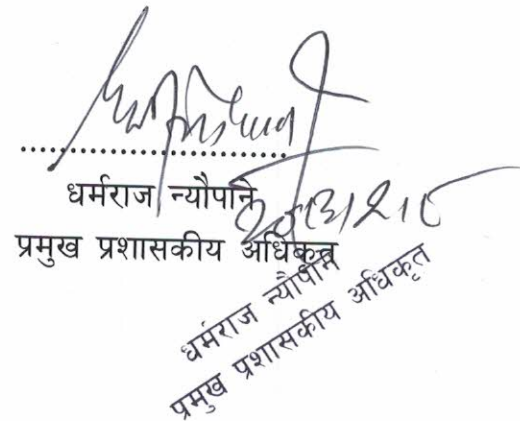 धर्मराज न्यौपाने
प्रमुख प्रशासकीय अधिकृत
धर्मराज न्यौपाने
प्रमुख प्रशासकीय अधिकृत